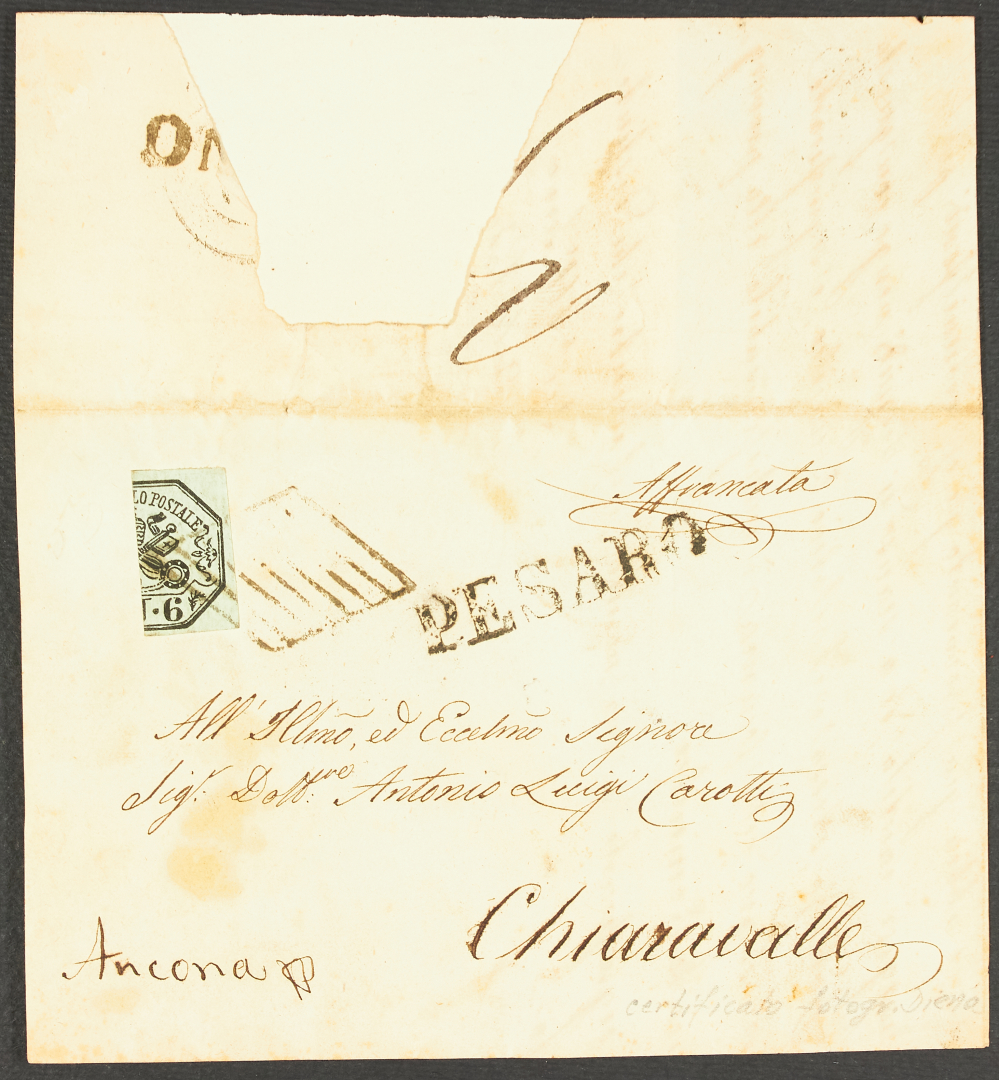 ON
Affrancata
LO POSTALE
PESARO
·6
All' Illmo, ed Eccelmo Signore
Sigr. Dottre Antonio Luigi Carotti
Chiaravalle
Ancona
certificato fotogr. Diena